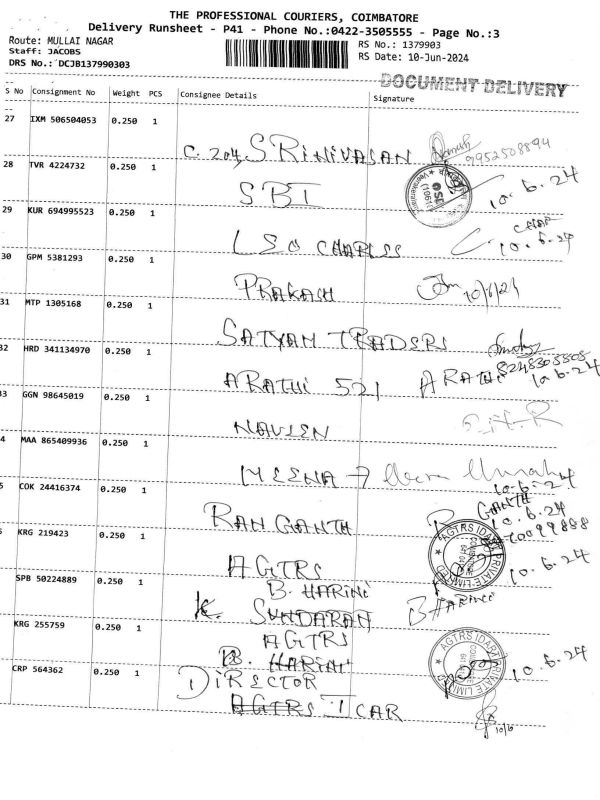 THE PROFESSIONAL COURIERS, COIMBATORE
Delivery Runsheet - P41 - Phone No.:0422-3505555 - Page No.:3
Route: MULLAI NAGAR
Staff: JACOBS
DRS No.: DCJB137990303
RS No.: 1379903
RS Date: 10-Jun-2024
DOCUMENT DELIVERY
S No Consignment No Weight PCS Consignee Details Signature
27 IXM 506504053 0.250 1
C. 204, SRINIVASAN 9952508894
28 TVR 4224732 0.250 1
SBI 10.6.24
29 KUR 694995523 0.250 1
LEO CHARLES 10.6.24
30 GPM 5381293 0.250 1
PRAKASH 10/6/24
31 MTP 1305168 0.250 1
SATYAM TRADERS
32 HRD 341134970 0.250 1
ARATHI 521 ARATHI 8248305505 10.6.24
3 GGN 98645019 0.250 1
NAVEEN
4 MAA 865409936 0.250 1
MEENA 10.6.24
5 COK 24416374 0.250 1
RANGANTH GANTH 10.6.24
6 KRG 219423 0.250 1
AGTRS 10.6.24
B. HARINI
SPB 50224889 0.250 1
K. SUNDARAN B HARINI
KRG 255759 0.250 1
AGTRS
B. HARINI 10.6.24
CRP 564362 0.250 1
DIRECTOR
AGTRS ICAR 10/6